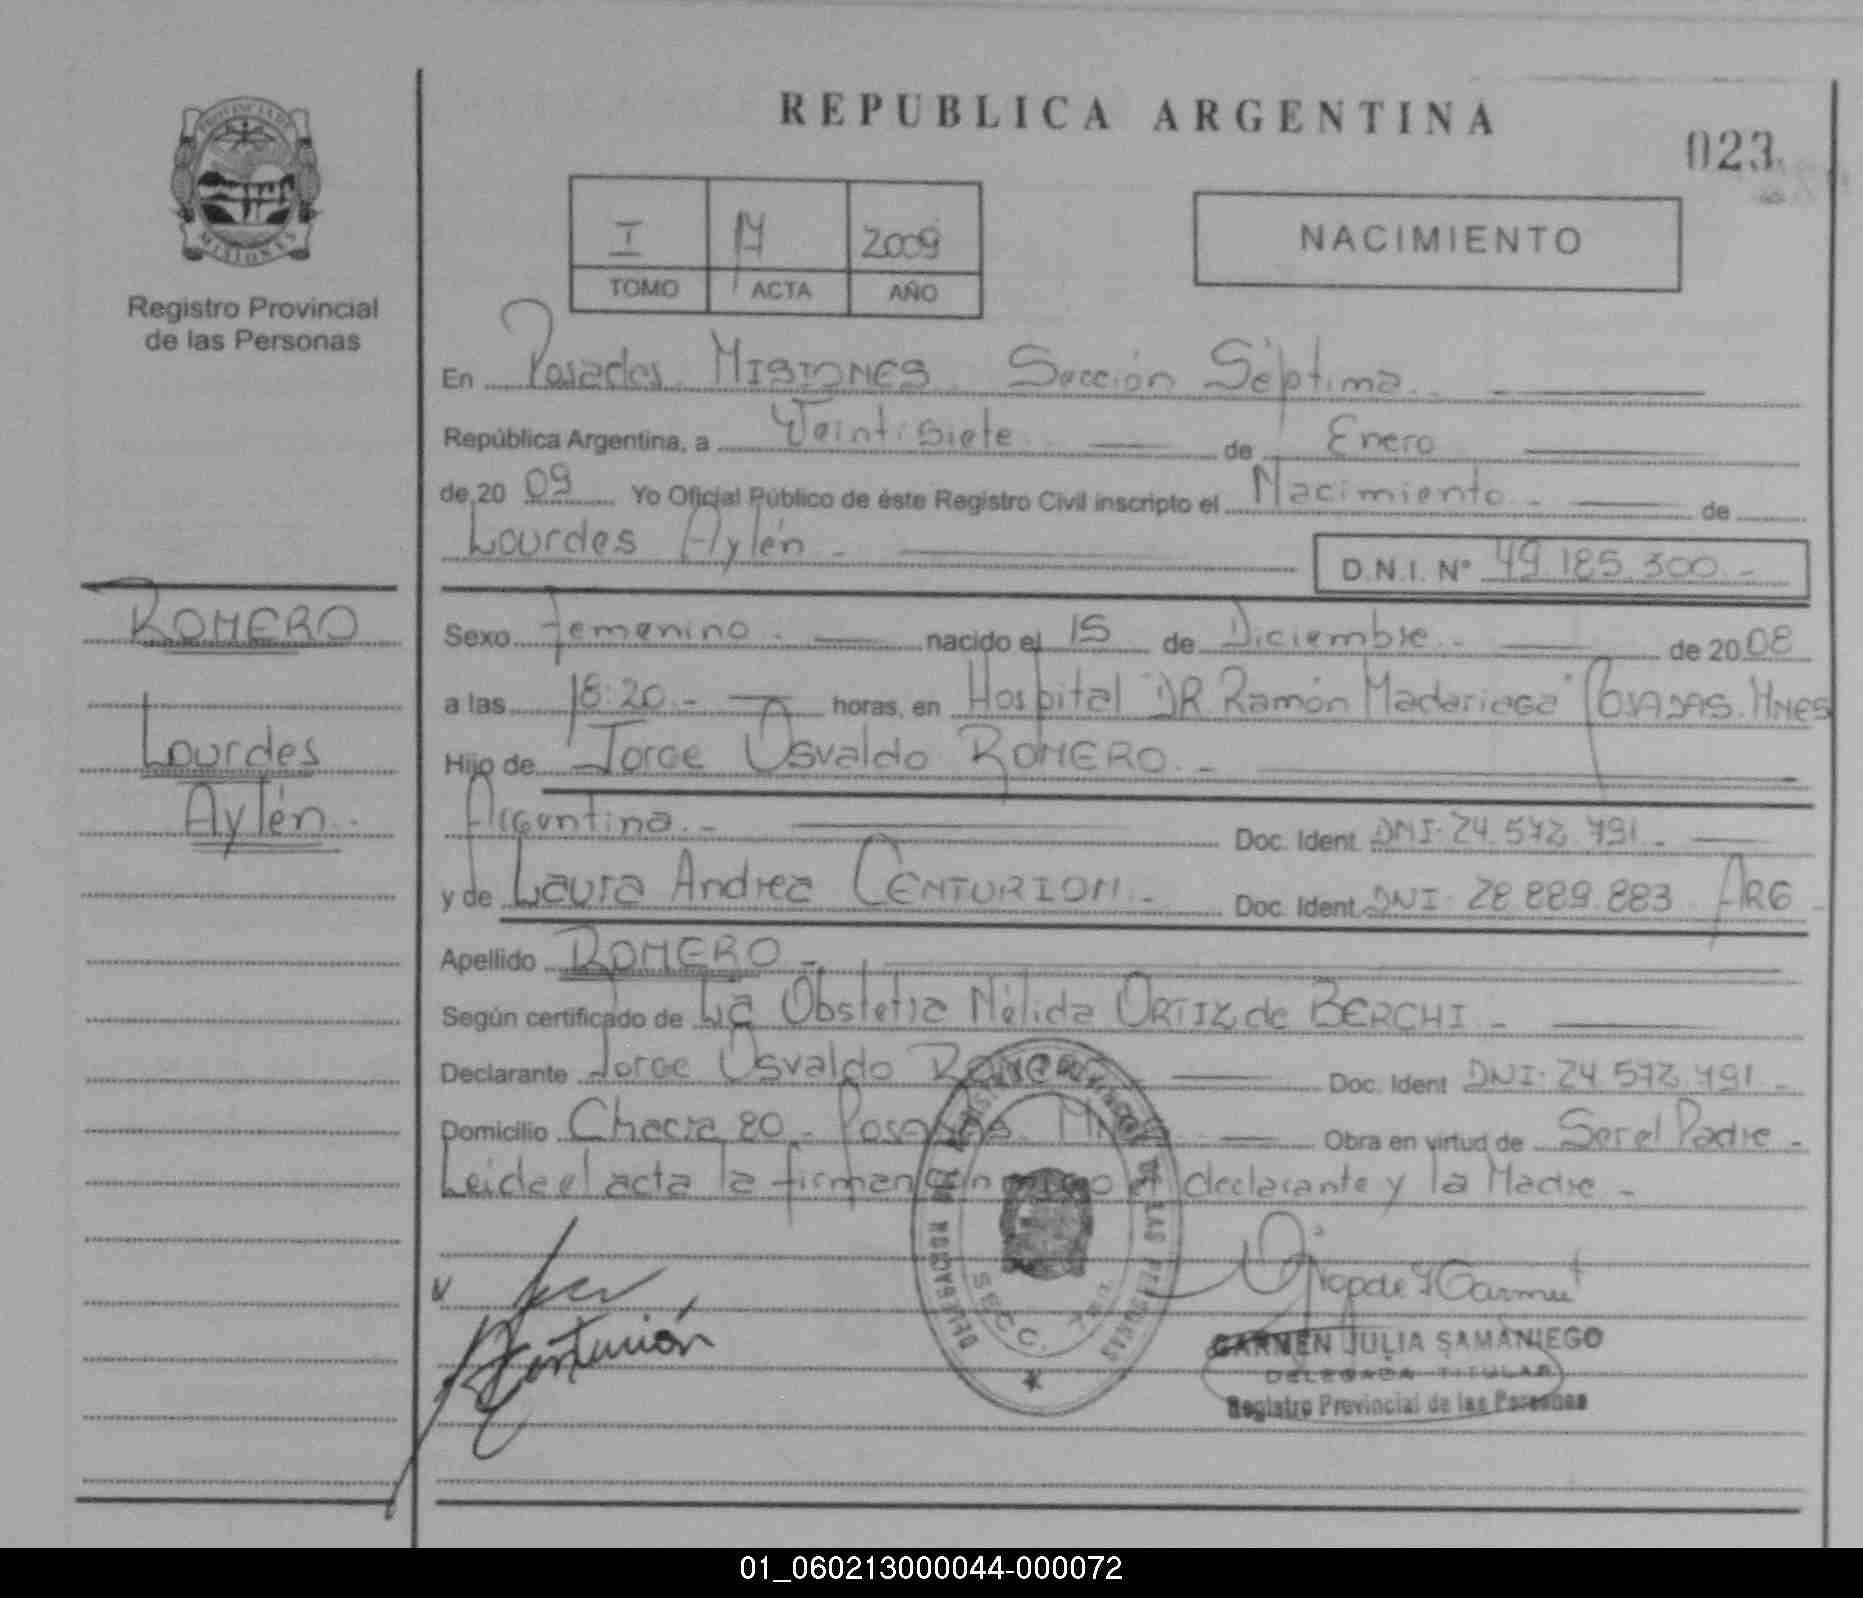 PROVINCIA DE
MISIONES
Registro Provincial
de las Personas
REPUBLICA ARGENTINA
023
I 2009
TOMO ACTA AÑO
NACIMIENTO
En Posadas Misiones Sección Séptima.
República Argentina, a Veintisiete de Enero
de 20 09 Yo Oficial Público de éste Registro Civil inscripto el Nacimiento - de
Lourdes Aylén - D.N.I. Nº 49.185.300.-
ROMERO
Lourdes
Aylén.-
Sexo Femenino - nacido el 15 de Diciembre.- de 20 08
a las 18:20.- horas, en Hospital "DR. Ramón Madariaga" POSADAS. Mnes
Hijo de Jorge Osvaldo ROMERO.-
Argentina.- Doc. Ident. DNI. 24.572.791.-
y de Laura Andrea CENTURION.- Doc. Ident. DNI. 28.889.883 ARG -
Apellido ROMERO -
Según certificado de La Obstetra Nélida ORTIZ de BERCHI -
Declarante Jorge Osvaldo Romero Doc. Ident DNI. 24.572.791 -
Domicilio Chacra 80.- Posadas. Mnes Obra en virtud de Ser el Padre -
Leida el acta la firman conmigo el declarante y la Madre -
Centurión
SECC. 7ma.
CARMEN JULIA SAMANIEGO
DELEGADA TITULAR
Registro Provincial de las Personas
01_060213000044-000072